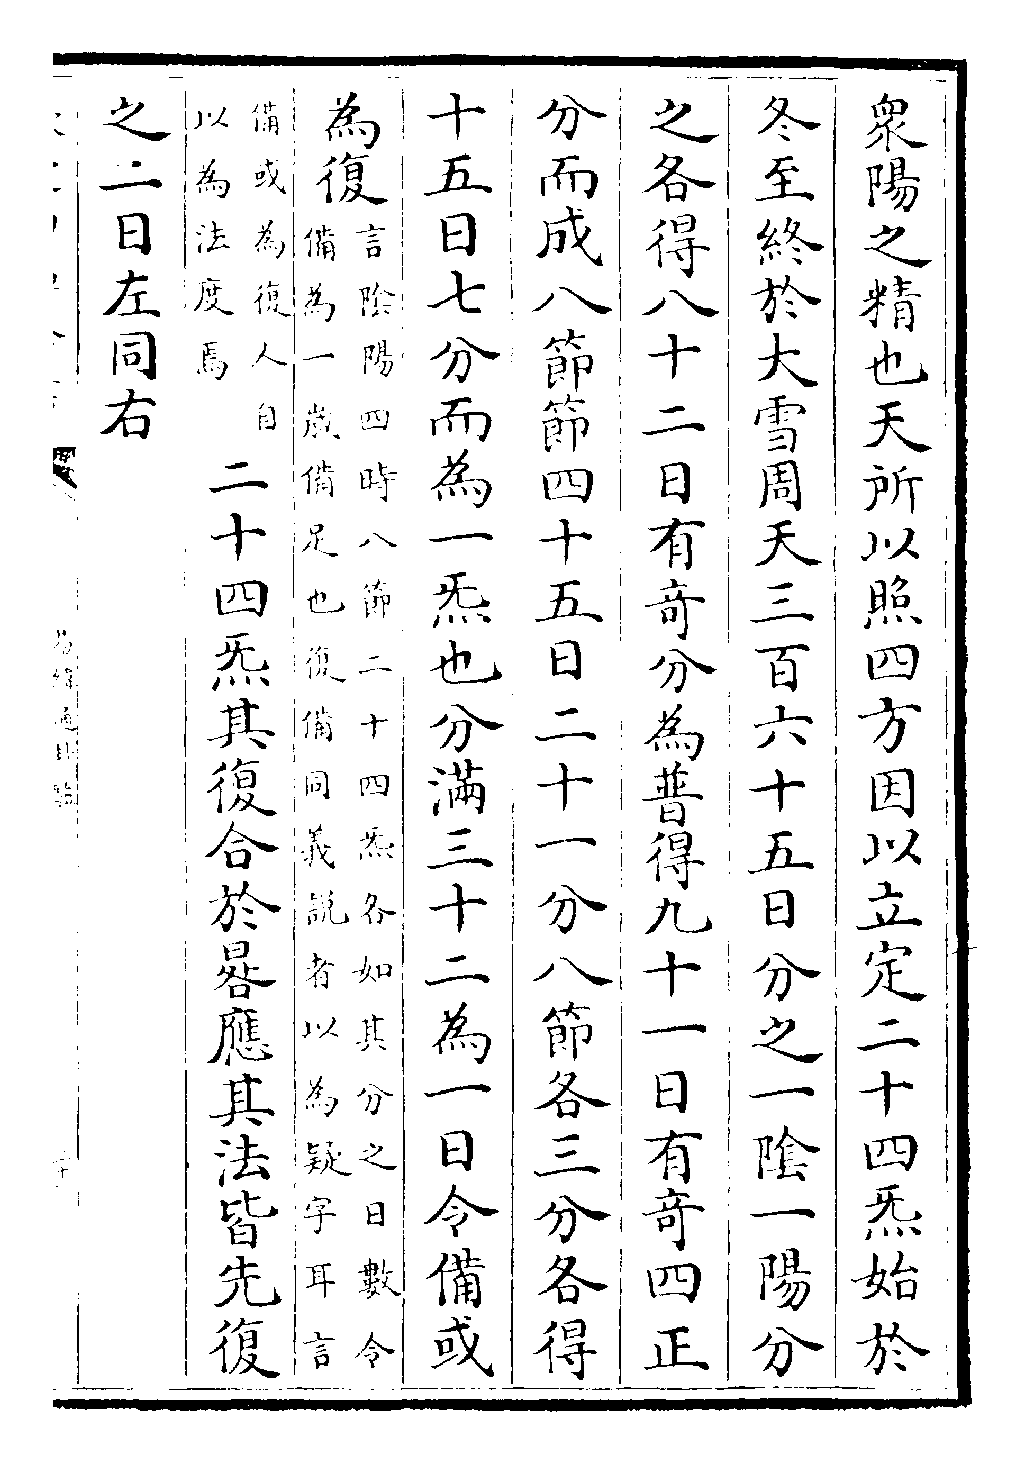 衆陽之精也天所以照四方因以立定二十四炁始於
冬至終於大雪周天三百六十五日分之一陰一陽分
之各得八十二日有奇分為普得九十一日有奇四正
分而成八節節四十五日二十一分八節各三分各得
十五日七分而為一炁也分滿三十二為一日令備或
為復
言陰陽四時八節二十四炁各如其分之日數令
備為一歲備足也復備同義說者以為疑字耳言
備或為復人自
以為法度焉
二十四炁其復合於晷應其法皆先復
之二日左同右